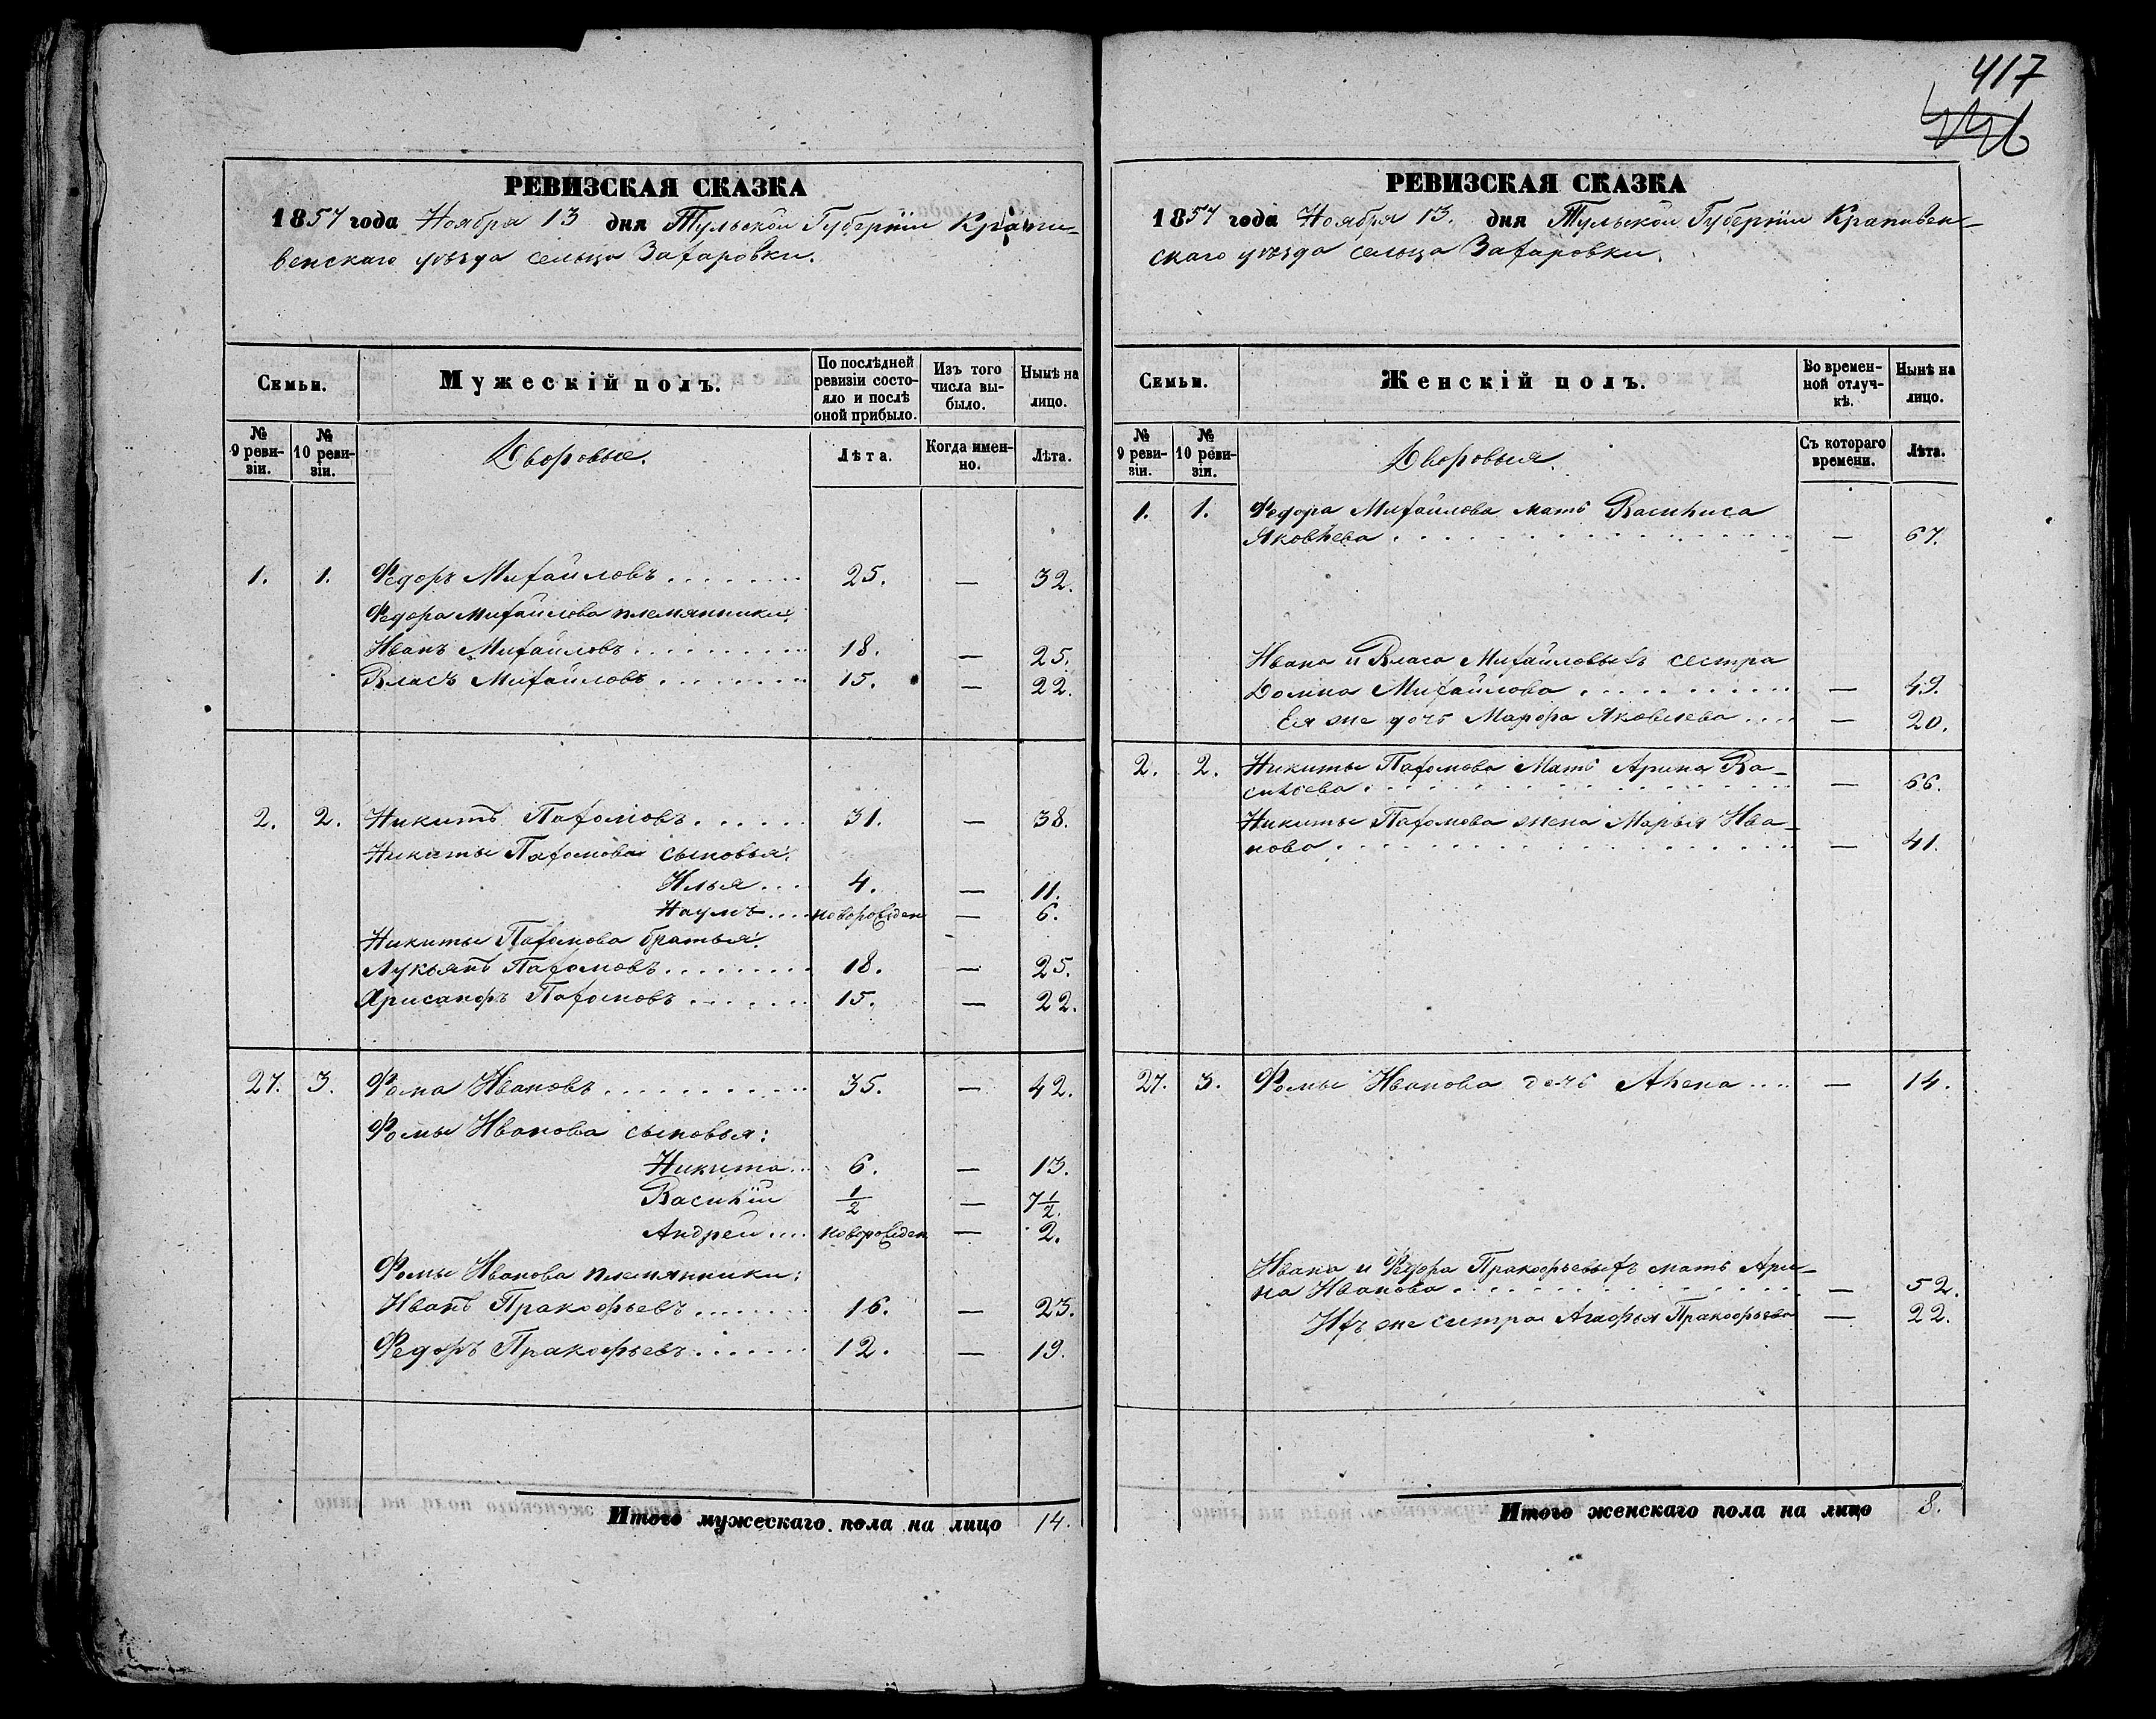 417
446
РЕВИЗСКАЯ СКАЗКА
1857 года Ноября 13 дня Тульской Губерніи Крапи-
венскаго уѣзда сельца Захаровки.
Семьи.
Мужескій полъ.
По послѣдней ревизіи состо-
яло и послѣ оной прибыло.
Изъ того числа вы-
было.
Нынѣ на лицо.
№ 9 реви-
зіи.
№ 10 реви-
зіи.
Дворовые.
Лѣта.
Когда имен-
но.
Лѣта.
1. 1. Федоръ Михайловъ . . . . . . . 25. — 32.
Федора Михайлова племянники:
Иванъ Михайловъ . . . . . . . . . 18. — 25.
Власъ Михайловъ . . . . . . . . 15. — 22.
2. 2. Никитъ Пахомовъ . . . . . . 31. — 38.
Никиты Пахомова сыновья:
Илья . . . . 4. — 11.
Наумъ . . . . новорожден — 6.
Никиты Пахомова братья:
Лукьянъ Пахомовъ . . . . . . . . 18. — 25.
Хрисанфъ Пахомовъ . . . . . . . 15. — 22.
27. 3. Фома Ивановъ . . . . . . . . . . 35. — 42.
Фомы Иванова сыновья:
Никита . . 6. — 13.
Василій 1/2 — 7 1/2.
Андрей . . . . новорожден — 2.
Фомы Иванова племянники:
Иванъ Пракофьевъ . . . . . . . 16. — 23.
Федоръ Пракофьевъ . . . . . . . 12. — 19.
Итого мужескаго пола на лицо 14.
РЕВИЗСКАЯ СКАЗКА
1857 года Ноября 13. дня Тульской Губерніи Крапивен-
скаго уѣзда сельца Захаровки.
Семьи.
Женскій полъ.
Во времен-
ной отлуч-
кѣ.
Нынѣ на лицо.
№ 9 реви-
зіи.
№ 10 реви-
зіи.
Дворовыя.
Съ котораго времени.
Лѣта.
1. 1. Федора Михайлова мать Василиса
Яковлева . . . . . . . . . . . . . . . . — 67.
Ивана и Власа Михайловыхъ сестра
Домна Михайлова . . . . . . . . . . — 49.
Ея же дочь Марфа Яковлева . . . . — 20.
2. 2. Никиты Пахомова Мать Арина Ва-
сильева . . . . . . . . . . . . . . . . . — 66.
Никиты Пахомова жена Марья Ива-
нова . . . . . . . . . . . . . . . . . . — 41.
27. 3. Фомы Иванова дочь Алена . . . . — 14.
Ивана и Федора Пракофьевыхъ мать Ари-
на Иванова . . . . . . . . . . . . . — 52.
Ихъ же сестра Агафья Пракофьева — 22.
Итого женскаго пола на лицо 8.